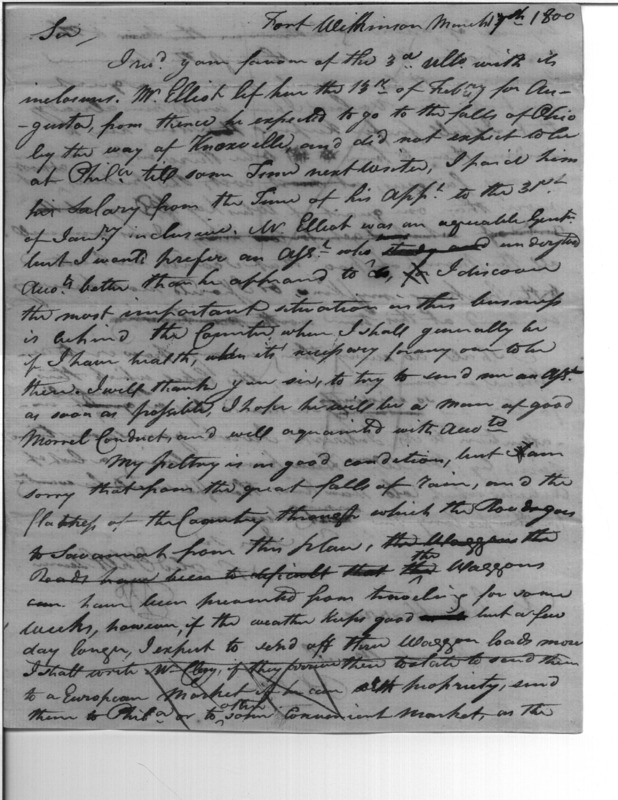 Fort Wilkinson March 7th 1800
Sir,
I recd. your favour of the 3d ullto with its
inclosures. Mr. Elliot left here the 13th of Feby for Au-
-gusta, from thence he expected to go to the falls of Ohio
by the way of Knoxville, and did not expect to be
at Phila. till some Time next Winter, I paid him
his Salary from the Time of his appt. to the 31st
of Jany. inclusive. Mr. Elliot was an agreeable Gent.
but I would prefer an Asst. who understood
Accots better than he appeared to do, I discover
the most important situation in this business
is behind the Counter where I shall generally be
if I have health, when its necessary for any one to be
there. I will thank you sir, to try to send me an Asst.
as soon as possible, I hope he will be a man of good
Morrel Conduct, and well aquainted with Accots
My peltry is in good condition, but I am
sorry that from the great falls of rain, and the
flatness of the Country through which the Road goes
to Savannah from this place, the Waggons the
Roads have been so dificult that the Waggons
can have been prevented from traveling for some
weeks, however, if the weather keeps good but a few
day longer, I expect to send off three Waggon loads more
I shall write Mr. Clay, if they
to a European Market if he can with propriety, send
them to Phila. or to some other Convenient market, as the